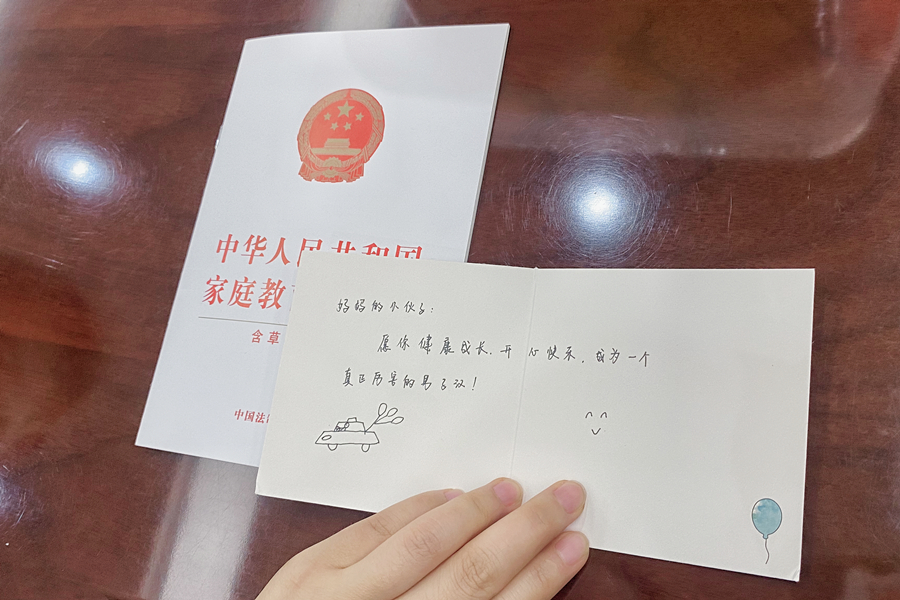 中华人民共和国
家庭教
含草
中国法
妈妈的小伙子：
愿你健康成长，开心快乐，成为一个
真正厉害的男子汉！